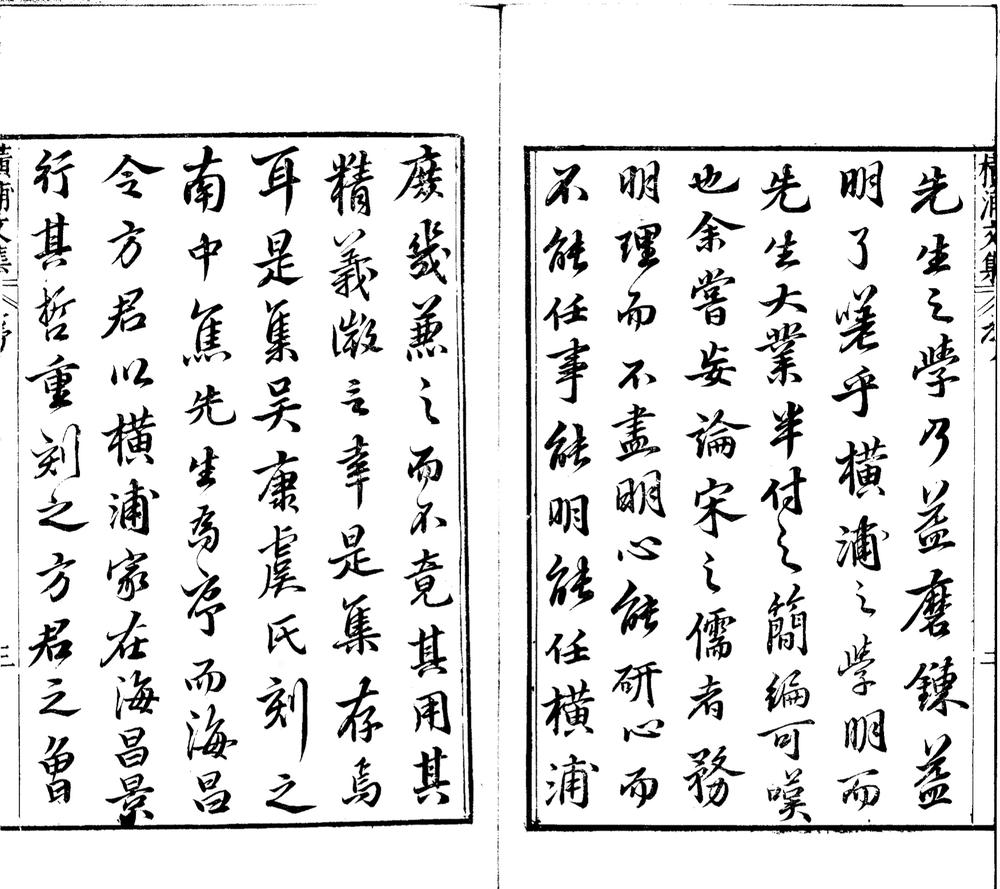 橫浦文集
先生之學乃益磨鍊益
明了嗟乎橫浦之學明而
先生大業半付之簡編可嘆
也余嘗妄論宋之儒者務
明理而不盡明心能研心而
不能任事能明能任橫浦
二
庶幾兼之而不竟其用其
精義微言幸是集存焉
耳是集吳康虞氏刻之
南中焦先生為序而海昌
令方君以橫浦家在海昌景
行其哲重刻之方君之曾
橫浦文集
序
三